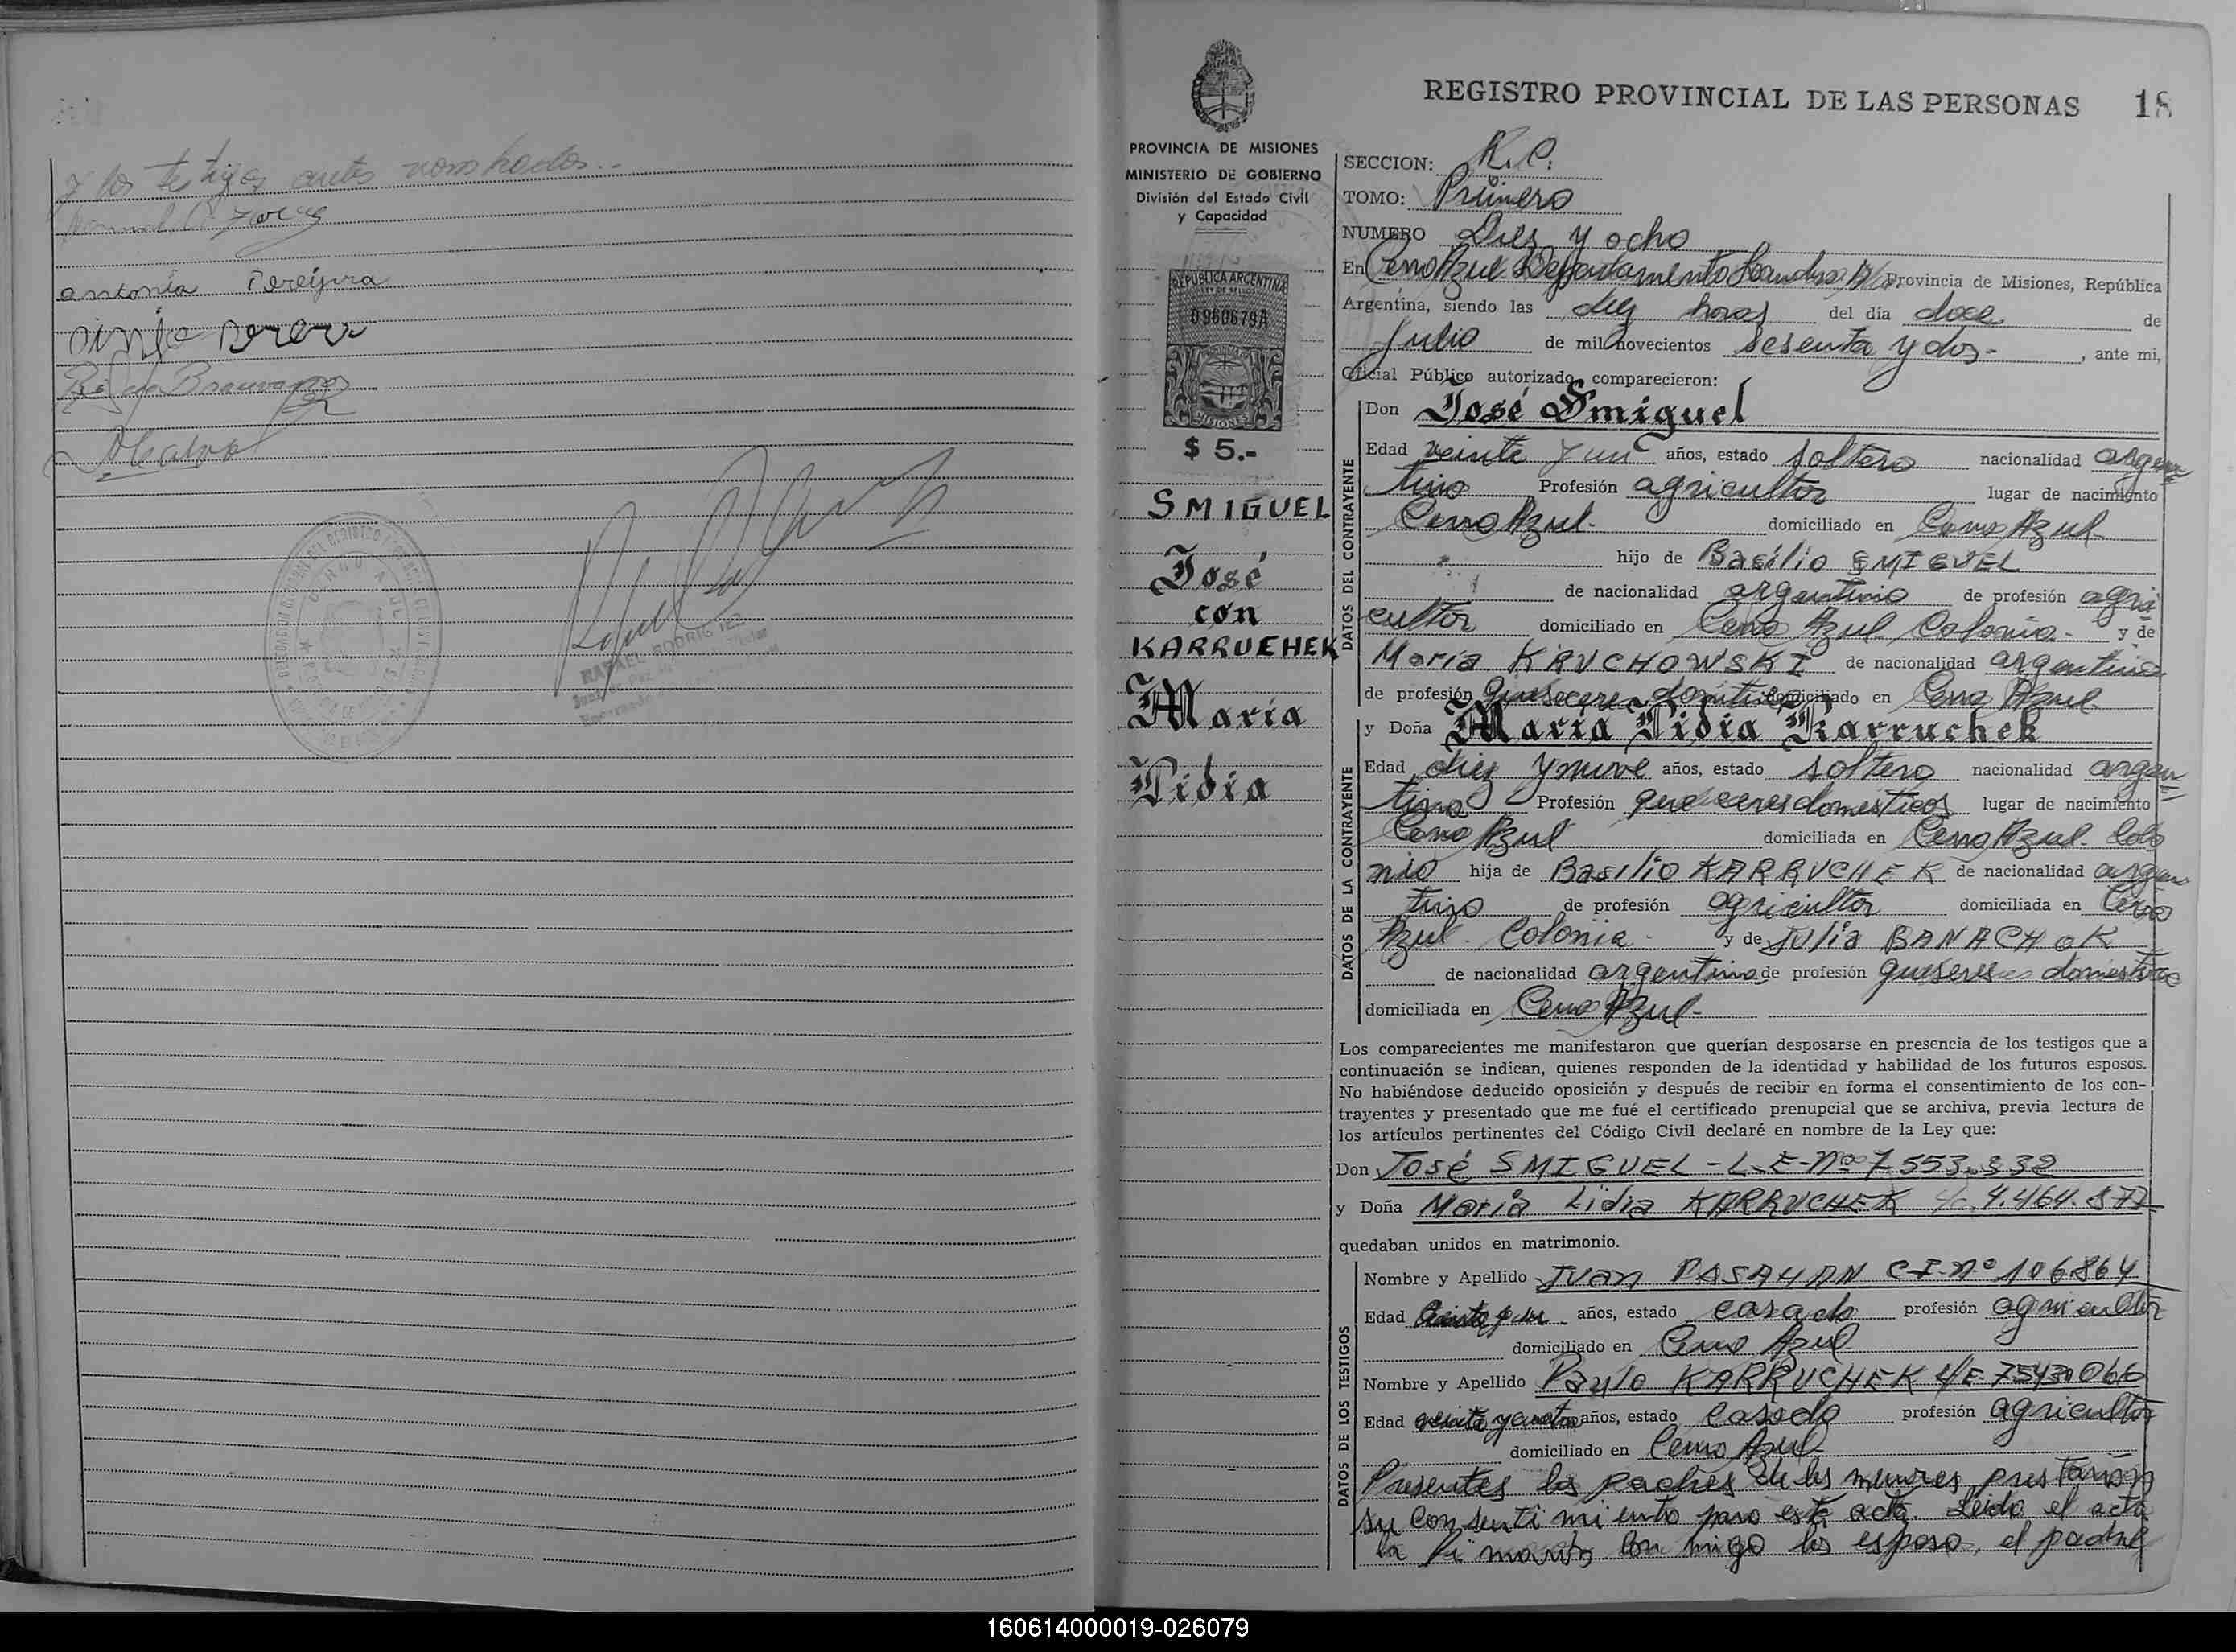 y los testigos antes nombrados..
antonia Pereÿra
REGISTRO PROVINCIAL DE LAS PERSONAS 18
PROVINCIA DE MISIONES
MINISTERIO DE GOBIERNO
División del Estado Civil
y Capacidad
REPUBLICA ARGENTINA
LEY DE SELLOS
0960679A
MISIONES
$ 5.-
SMIGUEL
José
con
KARRUCHEK
María
Lidia
RAFAEL RODRIGUEZ
SECCION: R. C.
TOMO: Primero
NUMERO Diez y ocho
En Cerro Azul Departamento Leandro N Provincia de Misiones, República
Argentina, siendo las diez horas del día doce de
Julio de mil novecientos sesenta y dos- , ante mi,
Oficial Público autorizado, comparecieron:
DATOS DEL CONTRAYENTE
Don José Smiguel
Edad veinte y un años, estado soltero nacionalidad argen
tino Profesión agricultor lugar de nacimiento
Cerro Azul- domiciliado en Cerro Azul-
hijo de Basilio SMIGUEL
de nacionalidad argentino de profesión agri
cultor domiciliado en Cerro Azul Colonia- y de
María KRUCHOWSKI de nacionalidad argentina
de profesión domiciliado en Cerro Azul-
DATOS DE LA CONTRAYENTE
y Doña María Lidia Karruchek
Edad diez y nueve años, estado soltera nacionalidad argen
tina Profesión quehaceres domesticos lugar de nacimiento
Cerro Azul domiciliada en Cerro Azul- Colo
nia hija de Basilio KARRUCHEK de nacionalidad argen
tino de profesión agricultor domiciliada en Cerro
Azul- Colonia- y de Julia BANACHOK
de nacionalidad argentina de profesión domesticos
domiciliada en Cerro Azul-
Los comparecientes me manifestaron que querían desposarse en presencia de los testigos que a
continuación se indican, quienes responden de la identidad y habilidad de los futuros esposos.
No habiéndose deducido oposición y después de recibir en forma el consentimiento de los con-
trayentes y presentado que me fué el certificado prenupcial que se archiva, previa lectura de
los artículos pertinentes del Código Civil declaré en nombre de la Ley que:
Don José SMIGUEL - L-E-Nº 7553.332
y Doña María Lidia KARRUCHEK 4.464.872
quedaban unidos en matrimonio.
DATOS DE LOS TESTIGOS
Nombre y Apellido Juan C-I-nº 106864
Edad años, estado casado profesión agricultor
domiciliado en Cerro Azul
Nombre y Apellido Paulo KARRUCHEK L/E 7543.066
Edad veinte y cuatro años, estado casado profesión agricultor
domiciliado en Cerro Azul-
Presentes los padres de los menores prestaron
su consentimiento para este acto. Leida el acta
la firmaron conmigo los esposo, el padre
160614000019-026079